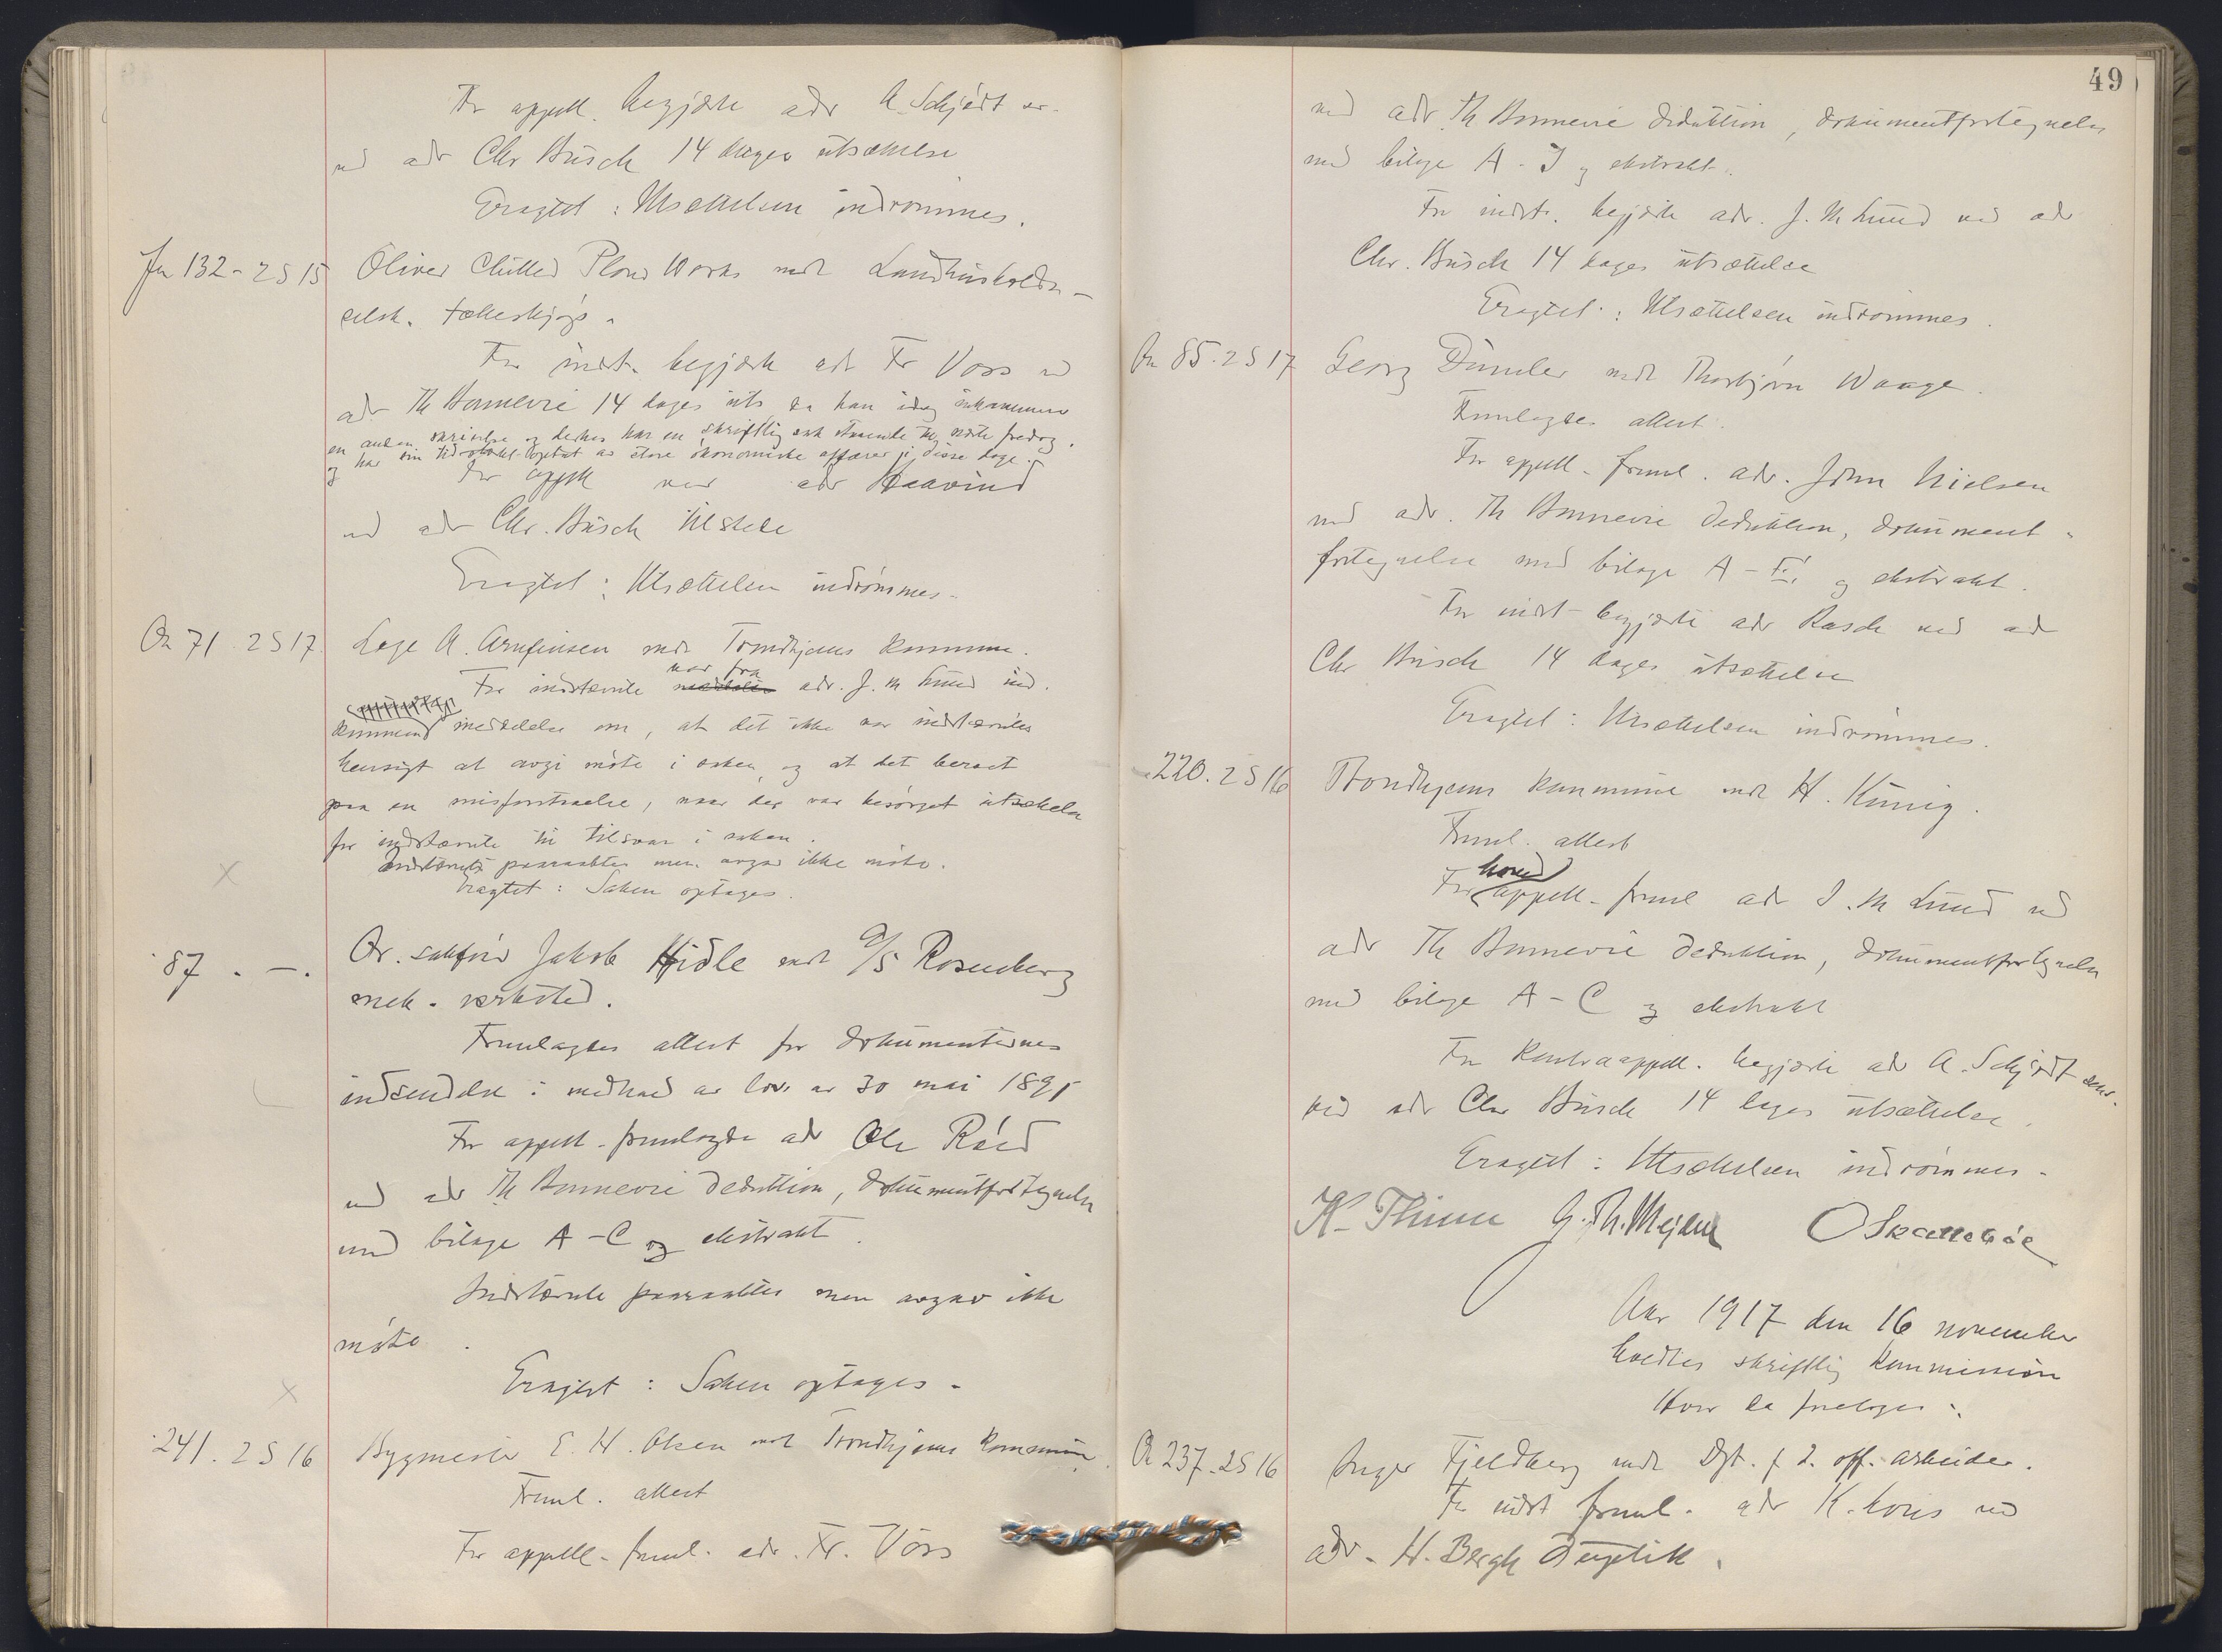 For appell. begjærte adv A. Schjødt
ved adv Chr Busch 14 dages utsættelse
Eragtet: Utsættelsen indrømmes.
Jn 132 - 2 S 15 Oliver Chilled Plow Works mot Landhusholdn-
selsk. fælleskjøp.
For indst. begjærte adv Fr Voss ved
adv Th Bonnevie 14 dages uts da han idag
en anden skrivelse og derhos har en skriftlig sak næste fredag.
og har sin tid optat av store økonomiske affærer i disse dage.
For appell var adv Haavind
ved adv Chr. Busch tilstede
Eragtet: Utsættelsen indrømmes.
On 71. 2 S 17. Lage A. Arnfinsen mot Trondhjems kommune.
For indstævnte var fra adv. J. M Lund ind-
kommen meddelelse om, at det ikke var indstævntes
hensigt at avgi møte i saken, og at det beroet
paa en misforstaaelse, naar der var besørget utsættelse
for indstævnte til tilsvar i saken.
Indstævnte paaraabtes men avgav ikke møte.
Eragtet: Saken optages.
" 87. - " -. Or. sakfører Jakob Hidle mot A/S Rosenberg
mek. verksted.
Fremlagdes attest for dokumenternes
indsendelse i medhold av lov av 30 mai 1891
For appell. fremlagde adv Ole Röed
ved adv Th Bonnevie deduktion, dokumentfortegnelse
med bilage A - C og ekstrakt.
Indstævnte paaraabtes men avgav ikke
møte.
Eragtet: Saken optages.
" 241. 2 S 16 Bygmester E. H. Olsen mot Trondhjems kommune.
Freml. attest
For appell. freml. adv. Fr. Voss
49
ved adv. Th Bonnevie deduktion, dokumentfortegnelse
med bilage A - I og ekstrakt.
For indst. begjærte adv. J. M Lund ved adv
Chr. Busch 14 dages utsættelse
Eragtet: Utsættelsen indrømmes.
On 85. 2 S 17 Georg Dümler mot Thorbjørn Waage.
Fremlagdes attest.
For appell. freml. adv. Jörn Nielsen
ved adv. Th Bonnevie deduktion, dokument-
fortegnelse med bilage A - og ekstrakt.
For indst begjærte adv Rasch ved adv
Chr Busch 14 dages utsættelse
Eragtet: Utsættelsen indrømmes.
" 220. 2 S 16 Trondhjems kommune mot H. König.
Freml. attest
For hovedappell. freml adv J. M Lund ved
adv Th Bonnevie deduktion, dokumentfortegnelse
med bilage A - C og ekstrakt
For Kontraappell. begjærte adv A. Schjødt
ved adv Chr Busch 14 dages utsættelse.
Eragtet: Utsættelsen indrømmes.
K. Thinn G. Th. Mejdell O Skattebøe
Aar 1917 den 16 november
holdtes skriftlig kommission
Hvor da foretoges:
On 237. 2 S 16 Inger Fjeldberg mot Dpt. f d. off. arbeider.
For indst freml. adv K. ved
adv. H. Bergh Duplik.